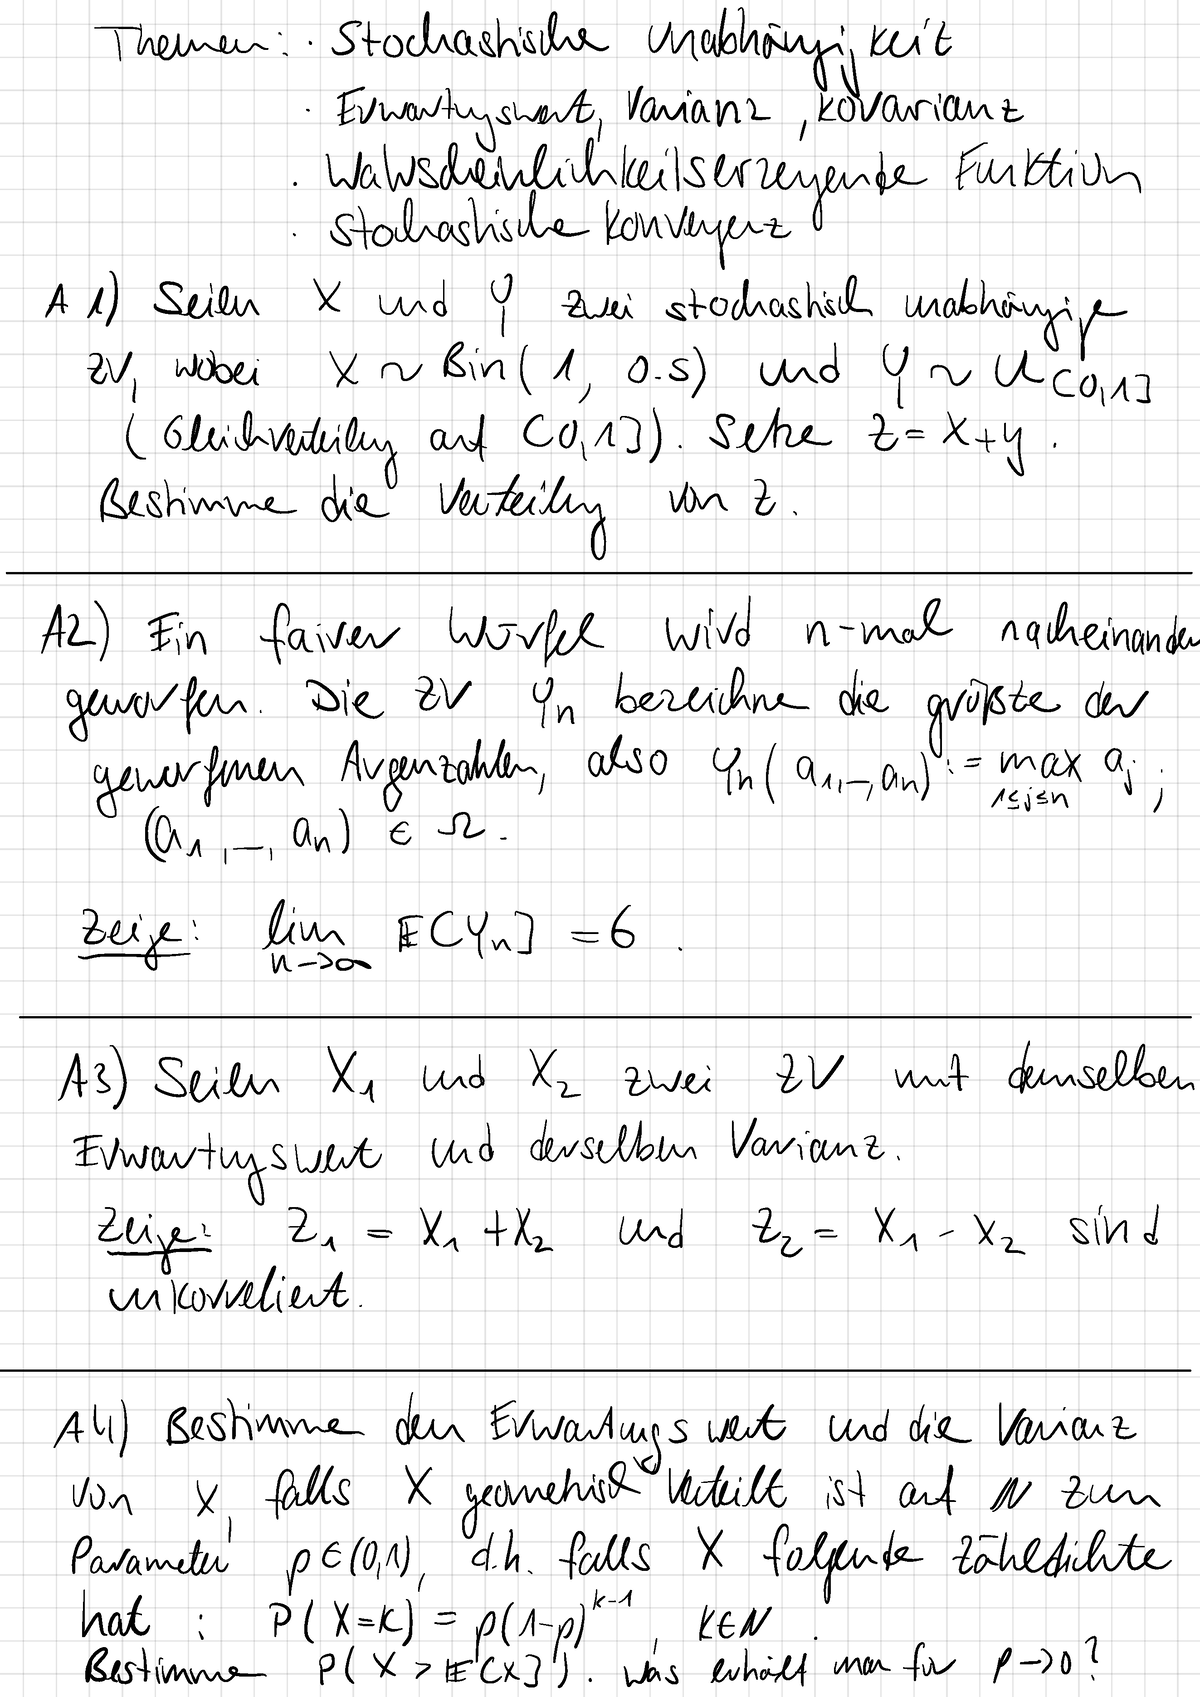 Themen: · Stochastische Unabhängigkeit
· Erwartungswert, Varianz, Kovarianz
· Wahrscheinlichkeitserzeugende Funktion
· Stochastische Konvergenz
A 1) Seien X und Y zwei stochastisch unabhängige
ZV, wobei X ~ Bin(1, 0.5) und Y ~ U[0,1]
(Gleichverteilung auf [0,1]). Setze Z = X+Y.
Bestimme die Verteilung von Z.
A2) Ein fairer Würfel wird n-mal nacheinander
geworfen. Die ZV Yn bezeichne die größte der
geworfenen Augenzahlen, also Yn(a1,–,an) := max aj ;
1≤j≤n
(a1,–,an) ∈ Ω.
Zeige: lim E[Yn] = 6.
n->∞
A3) Seien X1 und X2 zwei ZV mit demselben
Erwartungswert und derselben Varianz.
Zeige: Z1 = X1 + X2 und Z2 = X1 - X2 sind
unkorreliert.
A4) Bestimme den Erwartungswert und die Varianz
von X, falls X geometrisch verteilt ist auf N zum
Parameter p∈(0,1), d.h. falls X folgende Zähldichte
hat : P(X=k) = p(1-p)^{k-1}, k∈N.
Bestimme P(X > E[X]). Was erhält man für p->0?